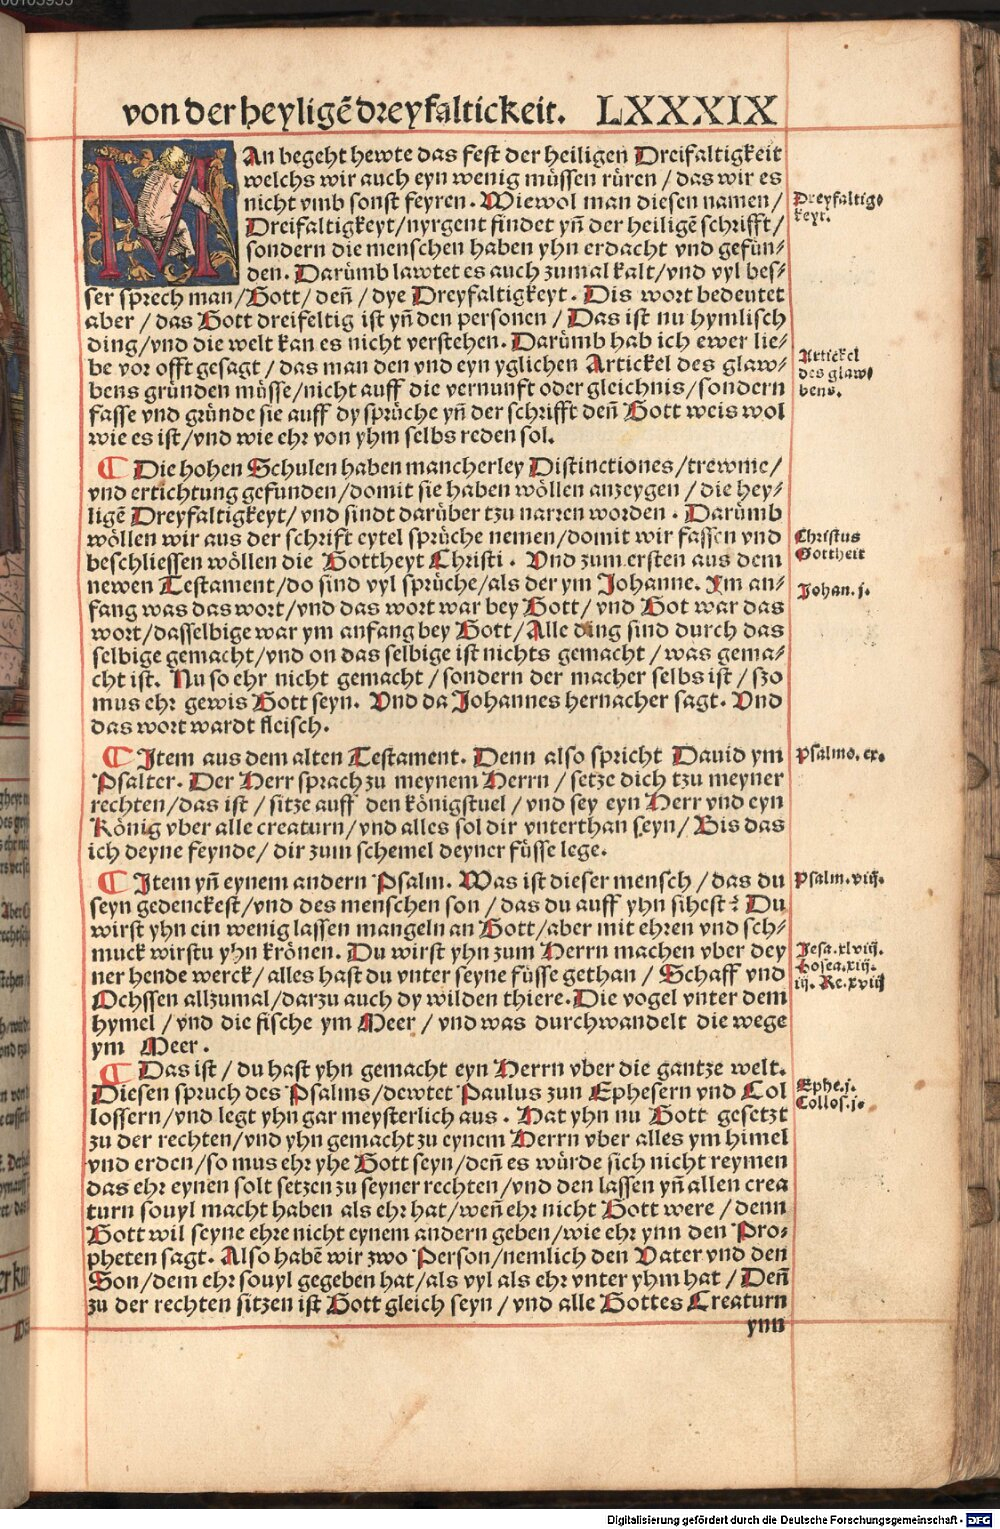 von der heyligẽ dreyfaltickeit. LXXXIX
MAn begeht hewte das fest der heiligen Dreifaltigkeit
welchs wir auch eyn wenig müssen rüren / das wir es
nicht vmb sonst feyren. Wiewol man diesen namen /
Dreifaltigkeyt / nyrgent findet yñ der heiligẽ schrifft /
sondern die menschen haben yhn erdacht vnd gefün-
den. Darümb lawtet es auch zumal kalt / vnd vyl bes-
ser sprech man / Gott / deñ / dye Dreyfaltigkeyt. Dis wort bedeutet
aber / das Gott dreifeltig ist yñ den personen / Das ist nu hymlisch
ding / vnd die welt kan es nicht verstehen. Darümb hab ich ewer lie-
be vor offt gesagt / das man den vnd eyn yglichen Artickel des glaw-
bens gründen müsse / nicht auff die vernunft oder gleichnis / sondern
fasse vnd gründe sie auff dy sprüche yñ der schrifft deñ Gott weis wol
wie es ist / vnd wie ehr von yhm selbs reden sol.
Dreyfaltig-
keyt.
Artickel
des glaw-
bens.
¶ Die hohen Schulen haben mancherley Distinctiones / trewme /
vnd ertichtung gefunden / domit sie haben wöllen anzeygen / die hey-
ligẽ Dreyfaltigkeyt / vnd sindt darüber tzu narren worden. Darümb
wöllen wir aus der schrift eytel sprüche nemen / domit wir fassen vnd
beschliessen wöllen die Gottheyt Christi. Vnd zum ersten aus dem
newen Testament / do sind vyl sprüche / als der ym Johanne. Im an-
fang was das wort / vnd das wort war bey Gott / vnd Got war das
wort / dasselbige war ym anfang bey Gott / Alle ding sind durch das
selbige gemacht / vnd on das selbige ist nichts gemacht / was gema-
cht ist. Nu so ehr nicht gemacht / sondern der macher selbs ist / szo
mus ehr gewis Gott seyn. Vnd da Johannes hernacher sagt. Vnd
das wort wardt fleisch.
Christus
Gottheit
Johan. j.
¶ Item aus dem alten Testament. Denn also spricht Dauid ym
Psalter. Der Herr sprach zu meynem Herrn / setze dich tzu meyner
rechten / das ist / sitze auff den königstuel / vnd sey eyn Herr vnd eyn
König vber alle creaturn / vnd alles sol dir vnterthan seyn / Bis das
ich deyne feynde / dir zum schemel deyner füsse lege.
Psalmo. cx.
¶ Item yñ eynem andern Psalm. Was ist dieser mensch / das du
seyn gedenckest / vnd des menschen son / das du auff yhn sihest? Du
wirst yhn ein wenig lassen mangeln an Gott / aber mit ehren vnd sch-
muck wirstu yhn krönen. Du wirst yhn zum Herrn machen vber dey
ner hende werck / alles hast du vnter seyne füsse gethan / Schaff vnd
Ochssen allzumal / darzu auch dy wilden thiere. Die vogel vnter dem
hymel / vnd die fische ym Meer / vnd was durchwandelt die wege
ym Meer.
Psalm. viij.
Jesa. xlviij.
hosea. xiij.
iij. Re. xviij
¶ Das ist / du hast yhn gemacht eyn Herrn vber die gantze welt.
Diesen spruch des Psalms / dewtet Paulus zun Ephesern vnd Col
lossern / vnd legt yhn gar meysterlich aus. Hat yhn nu Gott gesetzt
zu der rechten / vnd yhn gemacht zu eynem Herrn vber alles ym himel
vnd erden / so mus ehr yhe Gott seyn / deñ es würde sich nicht reymen
das ehr eynen solt setzen zu seyner rechten / vnd den lassen yñ allen crea
turn souyl macht haben als ehr hat / weñ ehr nicht Gott were / denn
Gott wil seyne ehre nicht eynem andern geben / wie ehr ynn den Pro-
pheten sagt. Also habẽ wir zwo Person / nemlich den Vater vnd den
Son / dem ehr souyl gegeben hat / als vyl als ehr vnter yhm hat / Deñ
zu der rechten sitzen ist Gott gleich seyn / vnd alle Gottes Creaturn
ynn
Ephe. j.
Collos. j.
Digitalisierung gefördert durch die Deutsche Forschungsgemeinschaft - DFG